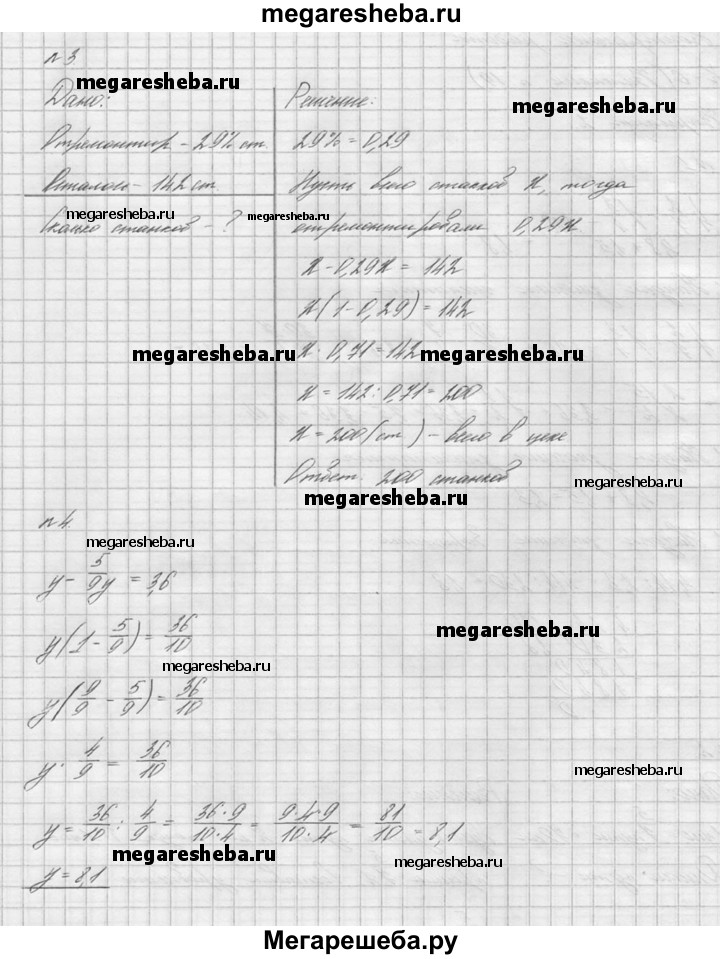 megaresheba.ru
n 3.
megaresheba.ru
Дано:
Отремонтир. - 29% ст.
Осталось - 142 ст.
megaresheba.ru
Сколько станков - ?
Решение:
megaresheba.ru
29% = 0,29
Пусть всего станков x, тогда
megaresheba.ru
отремонтировали 0,29x
x - 0,29x = 142
x(1-0,29) = 142
megaresheba.ru
x · 0,71 = 142
megaresheba.ru
x = 142 : 0,71 = 200
x = 200 (ст) - всего в цехе
Ответ. 200 станков
megaresheba.ru
megaresheba.ru
n 4.
megaresheba.ru
y - 5/9 y = 3,6
y(1 - 5/9) = 36/10
megaresheba.ru
megaresheba.ru
y(9/9 - 5/9) = 36/10
y · 4/9 = 36/10
megaresheba.ru
y = 36/10 : 4/9 = 36·9/10·4 = 9·4·9/10·4 = 81/10 = 8,1
megaresheba.ru
megaresheba.ru
y = 8,1
Мегарешеба.ру